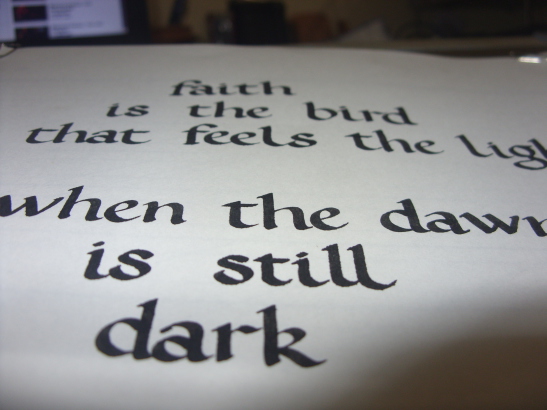 faith
is the bird
that feels the ligh
when the dawn
is still
dark